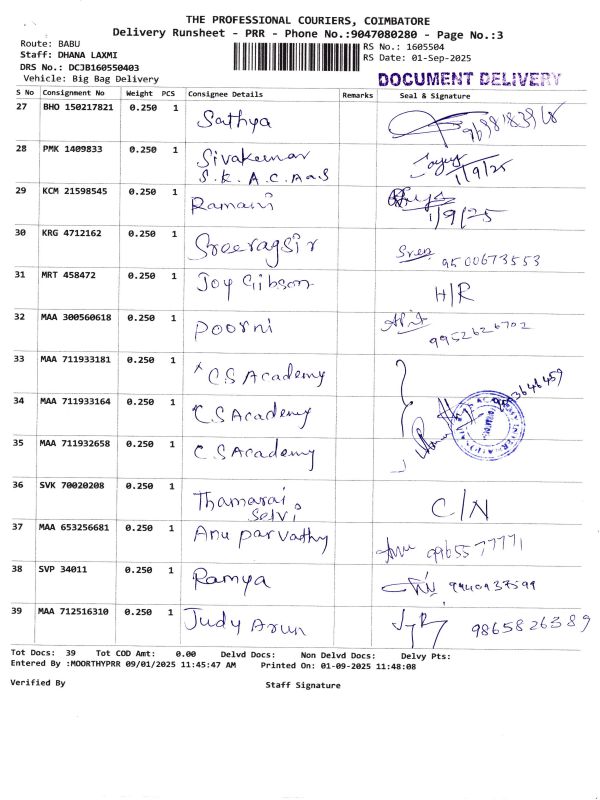 THE PROFESSIONAL COURIERS, COIMBATORE
Delivery Runsheet - PRR - Phone No.:9047080280 - Page No.:3
Route: BABU
Staff: DHANA LAXMI
DRS No.: DCJB160550403
Vehicle: Big Bag Delivery
RS No.: 1605504
RS Date: 01-Sep-2025
DOCUMENT DELIVERY
S No Consignment No Weight PCS Consignee Details Remarks Seal & Signature
27 BHO 150217821 0.250 1 Sathya
28 PMK 1409833 0.250 1 Sivakumar 1/9/25
S.K. A.C. Aas
29 KCM 21598545 0.250 1 Ramani 1/9/25
30 KRG 4712162 0.250 1 Sreeragsir Sree 9500673553
31 MRT 458472 0.250 1 Joy Gibson H/R
32 MAA 300560618 0.250 1 Poorni 9952626702
33 MAA 711933181 0.250 1 C.S Academy
34 MAA 711933164 0.250 1 C.S Academy
35 MAA 711932658 0.250 1 C.S Academy
36 SVK 70020208 0.250 1 Thamarai C/N
Selvi
37 MAA 653256681 0.250 1 Anu parvathy Anu 9965577771
38 SVP 34011 0.250 1 Ramya 9940937599
39 MAA 712516310 0.250 1 Judy Arun 9865826389
Tot Docs: 39 Tot COD Amt: 0.00 Delvd Docs: Non Delvd Docs: Delvy Pts:
Entered By :MOORTHYPRR 09/01/2025 11:45:47 AM Printed On: 01-09-2025 11:48:08
Verified By Staff Signature